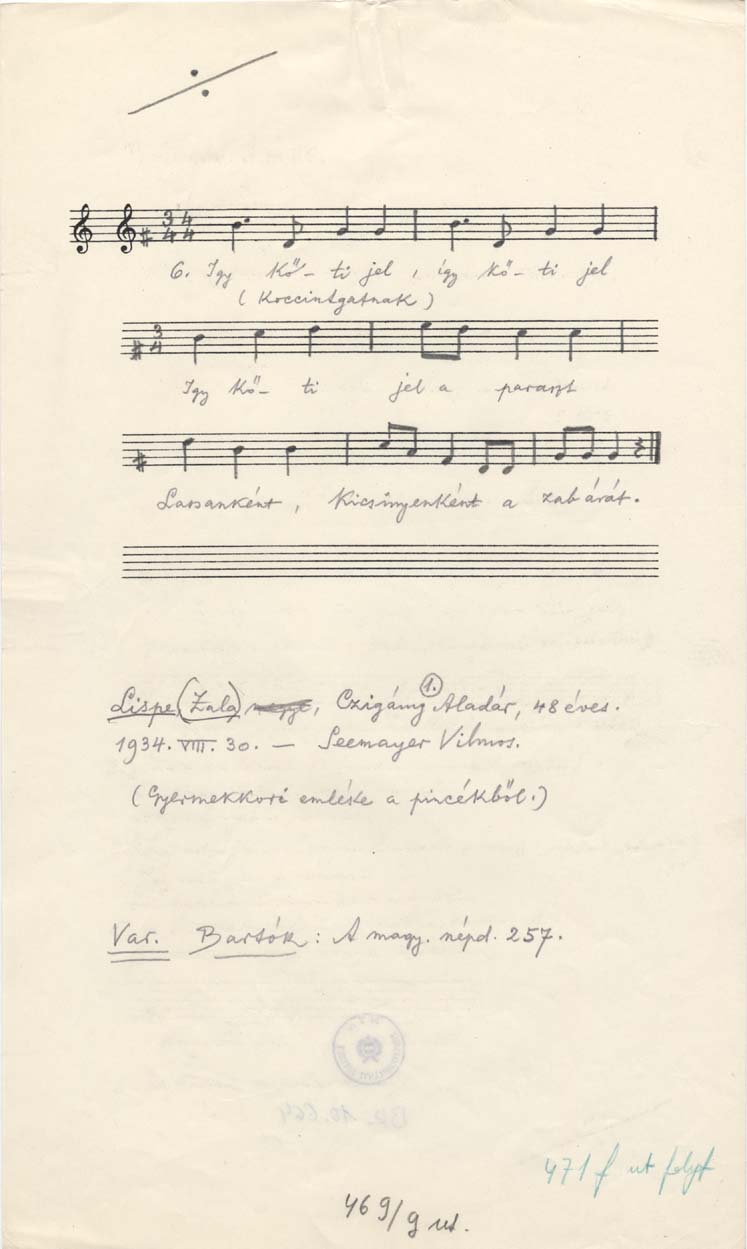 3 4
4 4
6. Igy kő- ti jel, így kő- ti jel
(Koccintgatnak)
3
4
Igy kő- ti jel a paraszt
Lassanként, kicsinyenként a zab árát.
Lispe (Zala) megye, Czigány Aladár, 48 éves.
1.
1934. VIII. 30. — Seemayer Vilmos.
(Gyermekkori emléke a pincékből.)
Var. Bartók: A magy. népd. 257.
471 f ut
469/g ut.